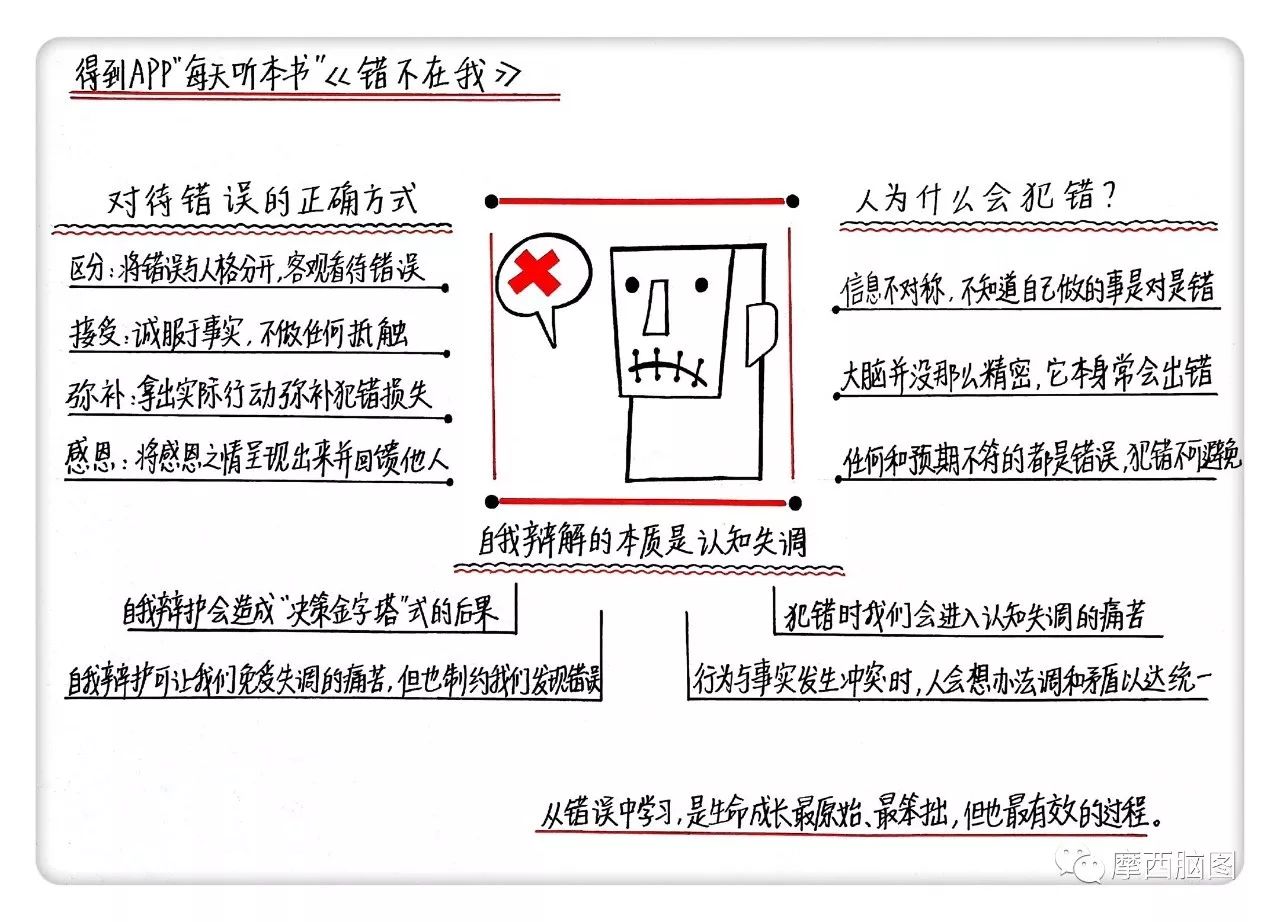 得到APP"每天听本书"《错不在我》
对待错误的正确方式
区分:将错误与人格分开,客观看待错误
接受:诚服于事实,不做任何抵触
弥补:拿出实际行动弥补犯错损失
感恩:将感恩之情呈现出来并回馈他人
人为什么会犯错?
信息不对称,不知道自己做的事是对是错
大脑并没那么精密,它本身常会出错
任何和预期不符的都是错误,犯错不可避免
自我辩解的本质是认知失调
自我辩护会造成"决策金字塔"式的后果
自我辩护可让我们免受失调的痛苦,但也制约我们发现错误
犯错时我们会进入认知失调的痛苦
行为与事实发生冲突时,人会想办法调和矛盾以达统一
从错误中学习,是生命成长最原始、最笨拙,但也最有效的过程。
摩西脑图